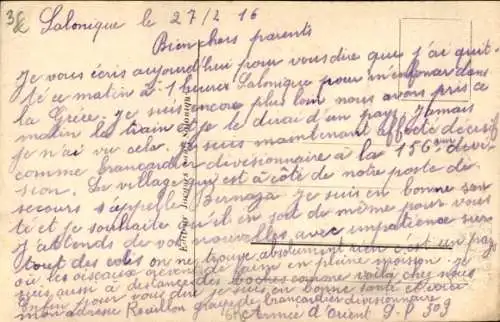 Salonique le 27/2 16
Bien chers parents
Je vous écris aujourd'hui pour vous dire que j'ai quit-
té ce matin à 1 heure Salonique pour m'enfoncer dans
la Grèce. Je suis encore plus loin nous avons pris ce
matin le train je le duai d'un pays jamais
je n'ai vu cela. Je suis maintenant affecté décisif
comme brancardier divisionnaire à la 156ème divi-
sion. Le village qui est à côté de notre poste de
secours s'appelle Bernaza. Je suis en bonne san-
té et je souhaite qu'il en soit de même pour vous
J'attends de vos nouvelles avec impatience sur-
tout des colis on ne trouve absolument rien c'est un pays
où les oiseaux crèvent de faim en pleine moisson. Je
suis aussi à distance des boches comme voilà chez nous
Enfin pour vous dire je suis en bonne santé et voici
mon adresse Rouillon groupe de brancardier divisionnaire
Armée d'Orient S.P 509
Editeur Jacques Salonique